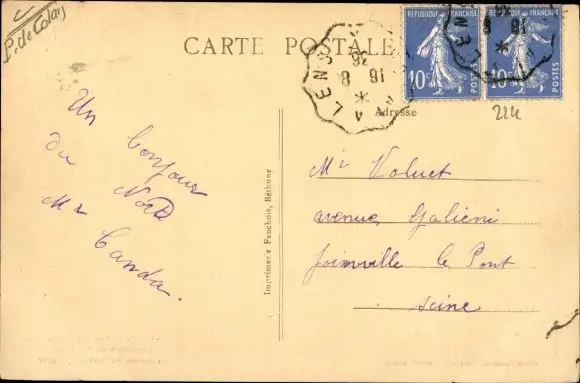 P. de Calais
CARTE POSTALE
REPUBLIQUE FRANÇAISE
10c POSTES
REPUBLIQUE FRANÇAISE
10c POSTES
A LENS
16 8
Adresse
22k
Un bonjour
du Nord
Mr Canda.
Imprimerie Fauchois, Béthune
Mr Voluet
avenue Galieni
Joinville le Pont
Seine